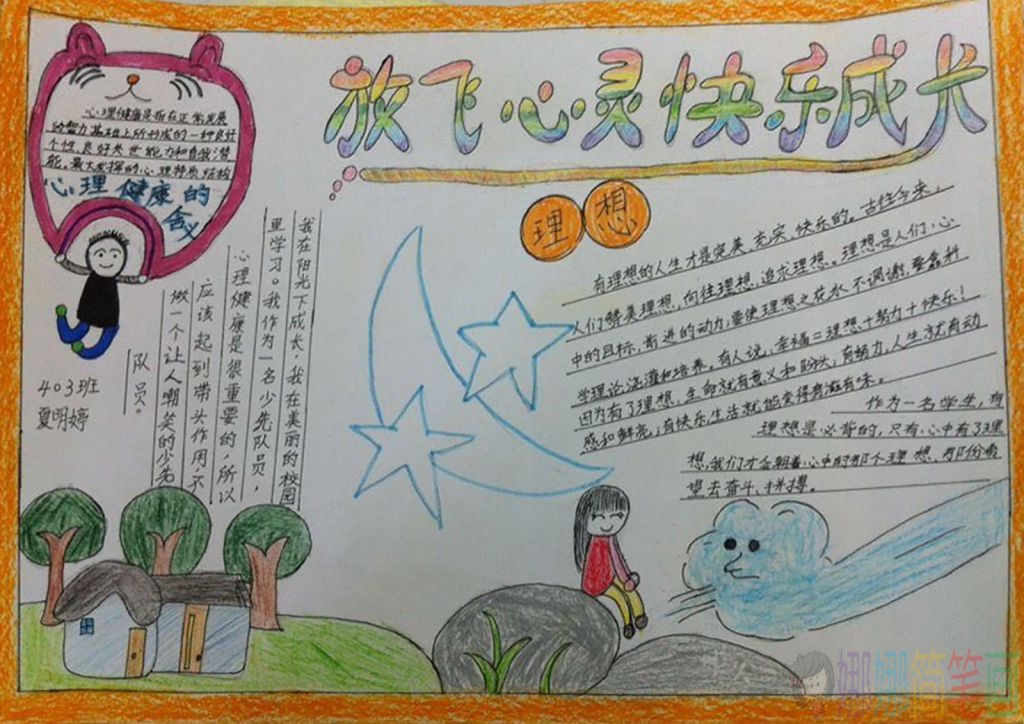 放飞心灵快乐成长
心理健康是指在正常发展
的智力基础上所形成的一种良好
个性、良好处世能力和自我潜
能、最大发挥的心理特质结构
心理健康的
含义
我在阳光下成长,我在美丽的校园
里学习。我作为一名少先队员,
心理健康是很重要的,所以
应该起到带头作用,不
做一个让人嘲笑的少先
队员。
403班
夏明婷
理想
有理想的人生才是完美、充实、快乐的。古往今来,
人们赞美理想,向往理想,追求理想。理想是人们心
中的目标,前进的动力,要使理想之花永不凋谢,要靠科
学理论浇灌和培养。有人说,幸福=理想+努力+快乐!
因为有了理想,生命就有意义和盼头;有努力,人生就有动
感和鲜亮;有快乐生活就能变得有滋有味。
作为一名学生,有
理想是必背的,只有心中有了理
想,我们才会朝着心中的那个理想,那份希
望去奋斗、拼搏。
娜娜简笔画